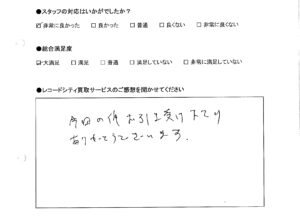 ●スタッフの対応はいかがでしたか?
☑非常に良かった □良かった □普通 □良くない □非常に良くない
●総合満足度
☑大満足 □満足 □普通 □満足していない □非常に満足していない
●レコードシティ買取サービスのご感想を聞かせてください
今回の件お引き受け下さり
ありがとうございます.